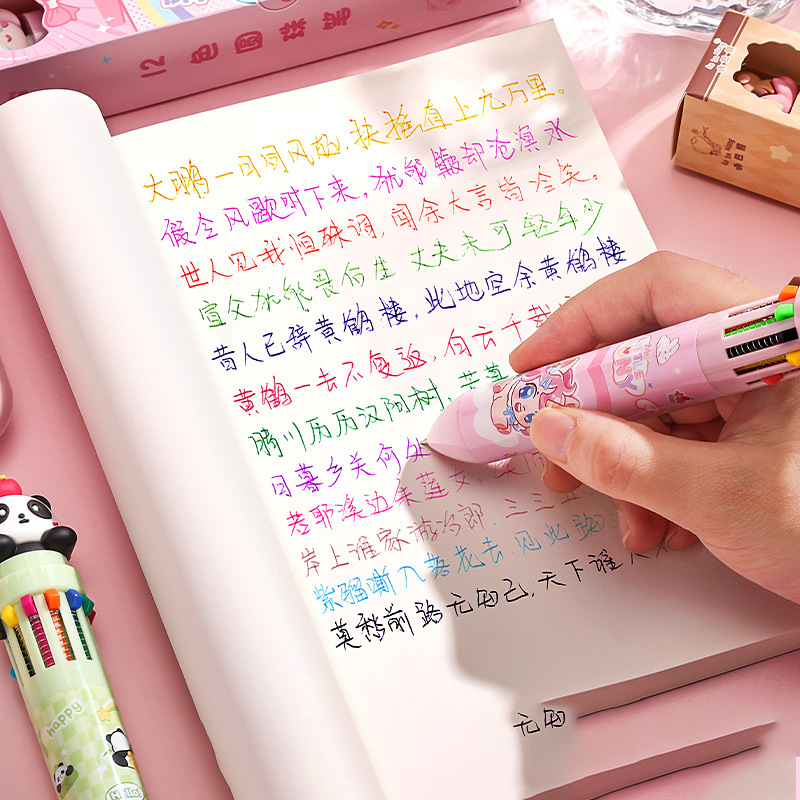 12色圆珠笔
大鹏一日同风起,扶摇直上九万里。
假令风歇时下来,犹能簸却沧溟水
世人见我恒殊调,闻余大言皆冷笑。
宣父犹能畏后生 丈夫未可轻年少
昔人已辞黄鹤楼,此地空余黄鹤楼
黄鹤一去不复返,白云千载
晴川历历汉阳树,芳草
日暮乡关何处
若耶溪边采莲女,笑
岸上谁家游冶郎.三三五
紫骝嘶入落花去.见此踟
莫愁前路无知己,天下谁人
无知
happy
Hello!